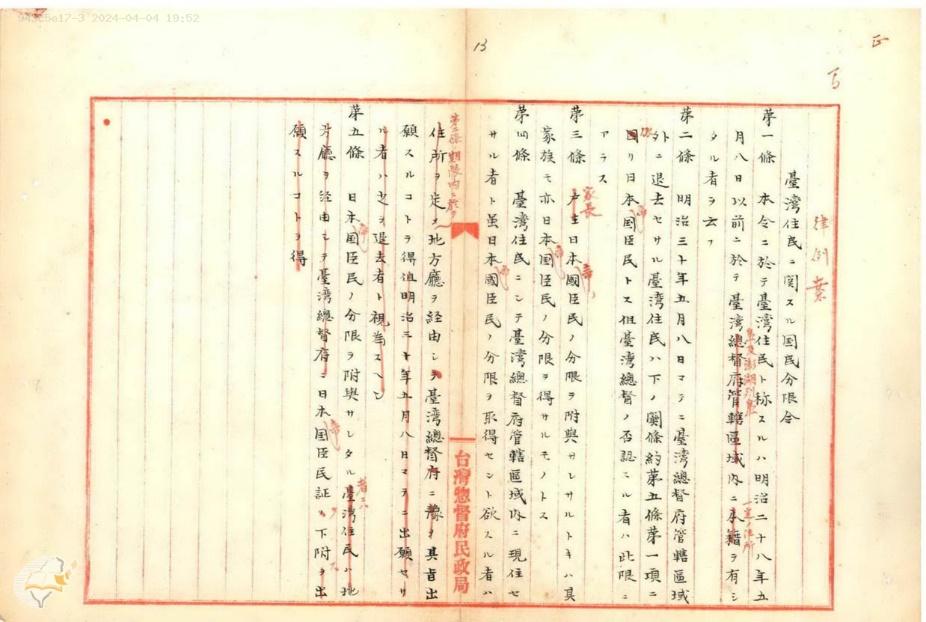 943c5e17-3 2024-04-04 19:52
13
正
律例案
臺灣住民ニ関スル国民分限令
第一條 本令ニ於テ臺灣住民ト称スルハ明治二十八年五
月八日以前ニ於テ臺灣總督府管轄區域内ニ本籍ヲ有シ
タル者ヲ云フ
一定ノ住所
第二條 明治三十年五月八日マテニ臺灣總督府管轄區域
外ニ退去セサル臺灣住民ハ下ノ関條約第五條第一項ニ
因リ日本国臣民トス但臺灣總督ノ否認シタル者ハ此限ニ
アラス
家長
第三條 戸主日本國臣民ノ分限ヲ附與サレサルトキハ其
家族モ亦日本国臣民ノ分限ヲ得サルモノトス
第四條 臺灣住民ニシテ臺灣總督府管轄區域内ニ現住セ
サル者ト虽日本國臣民ノ分限ヲ取得セント欲スル者ハ
台灣總督府民政局
住所ヲ定メ地方廳ヲ経由シテ臺灣總督府ニ其旨出
願スルコトヲ得但明治三十年五月八日マテニ出願セサ
ル者ハ之ヲ退去者ト視為スヘシ
第五條 日本国臣民ノ分限ヲ附與サレタル臺灣住民ハ地
方廳ヲ経由シテ臺灣總督府ニ日本国臣民証ノ下附ヲ出
願スルコトヲ得